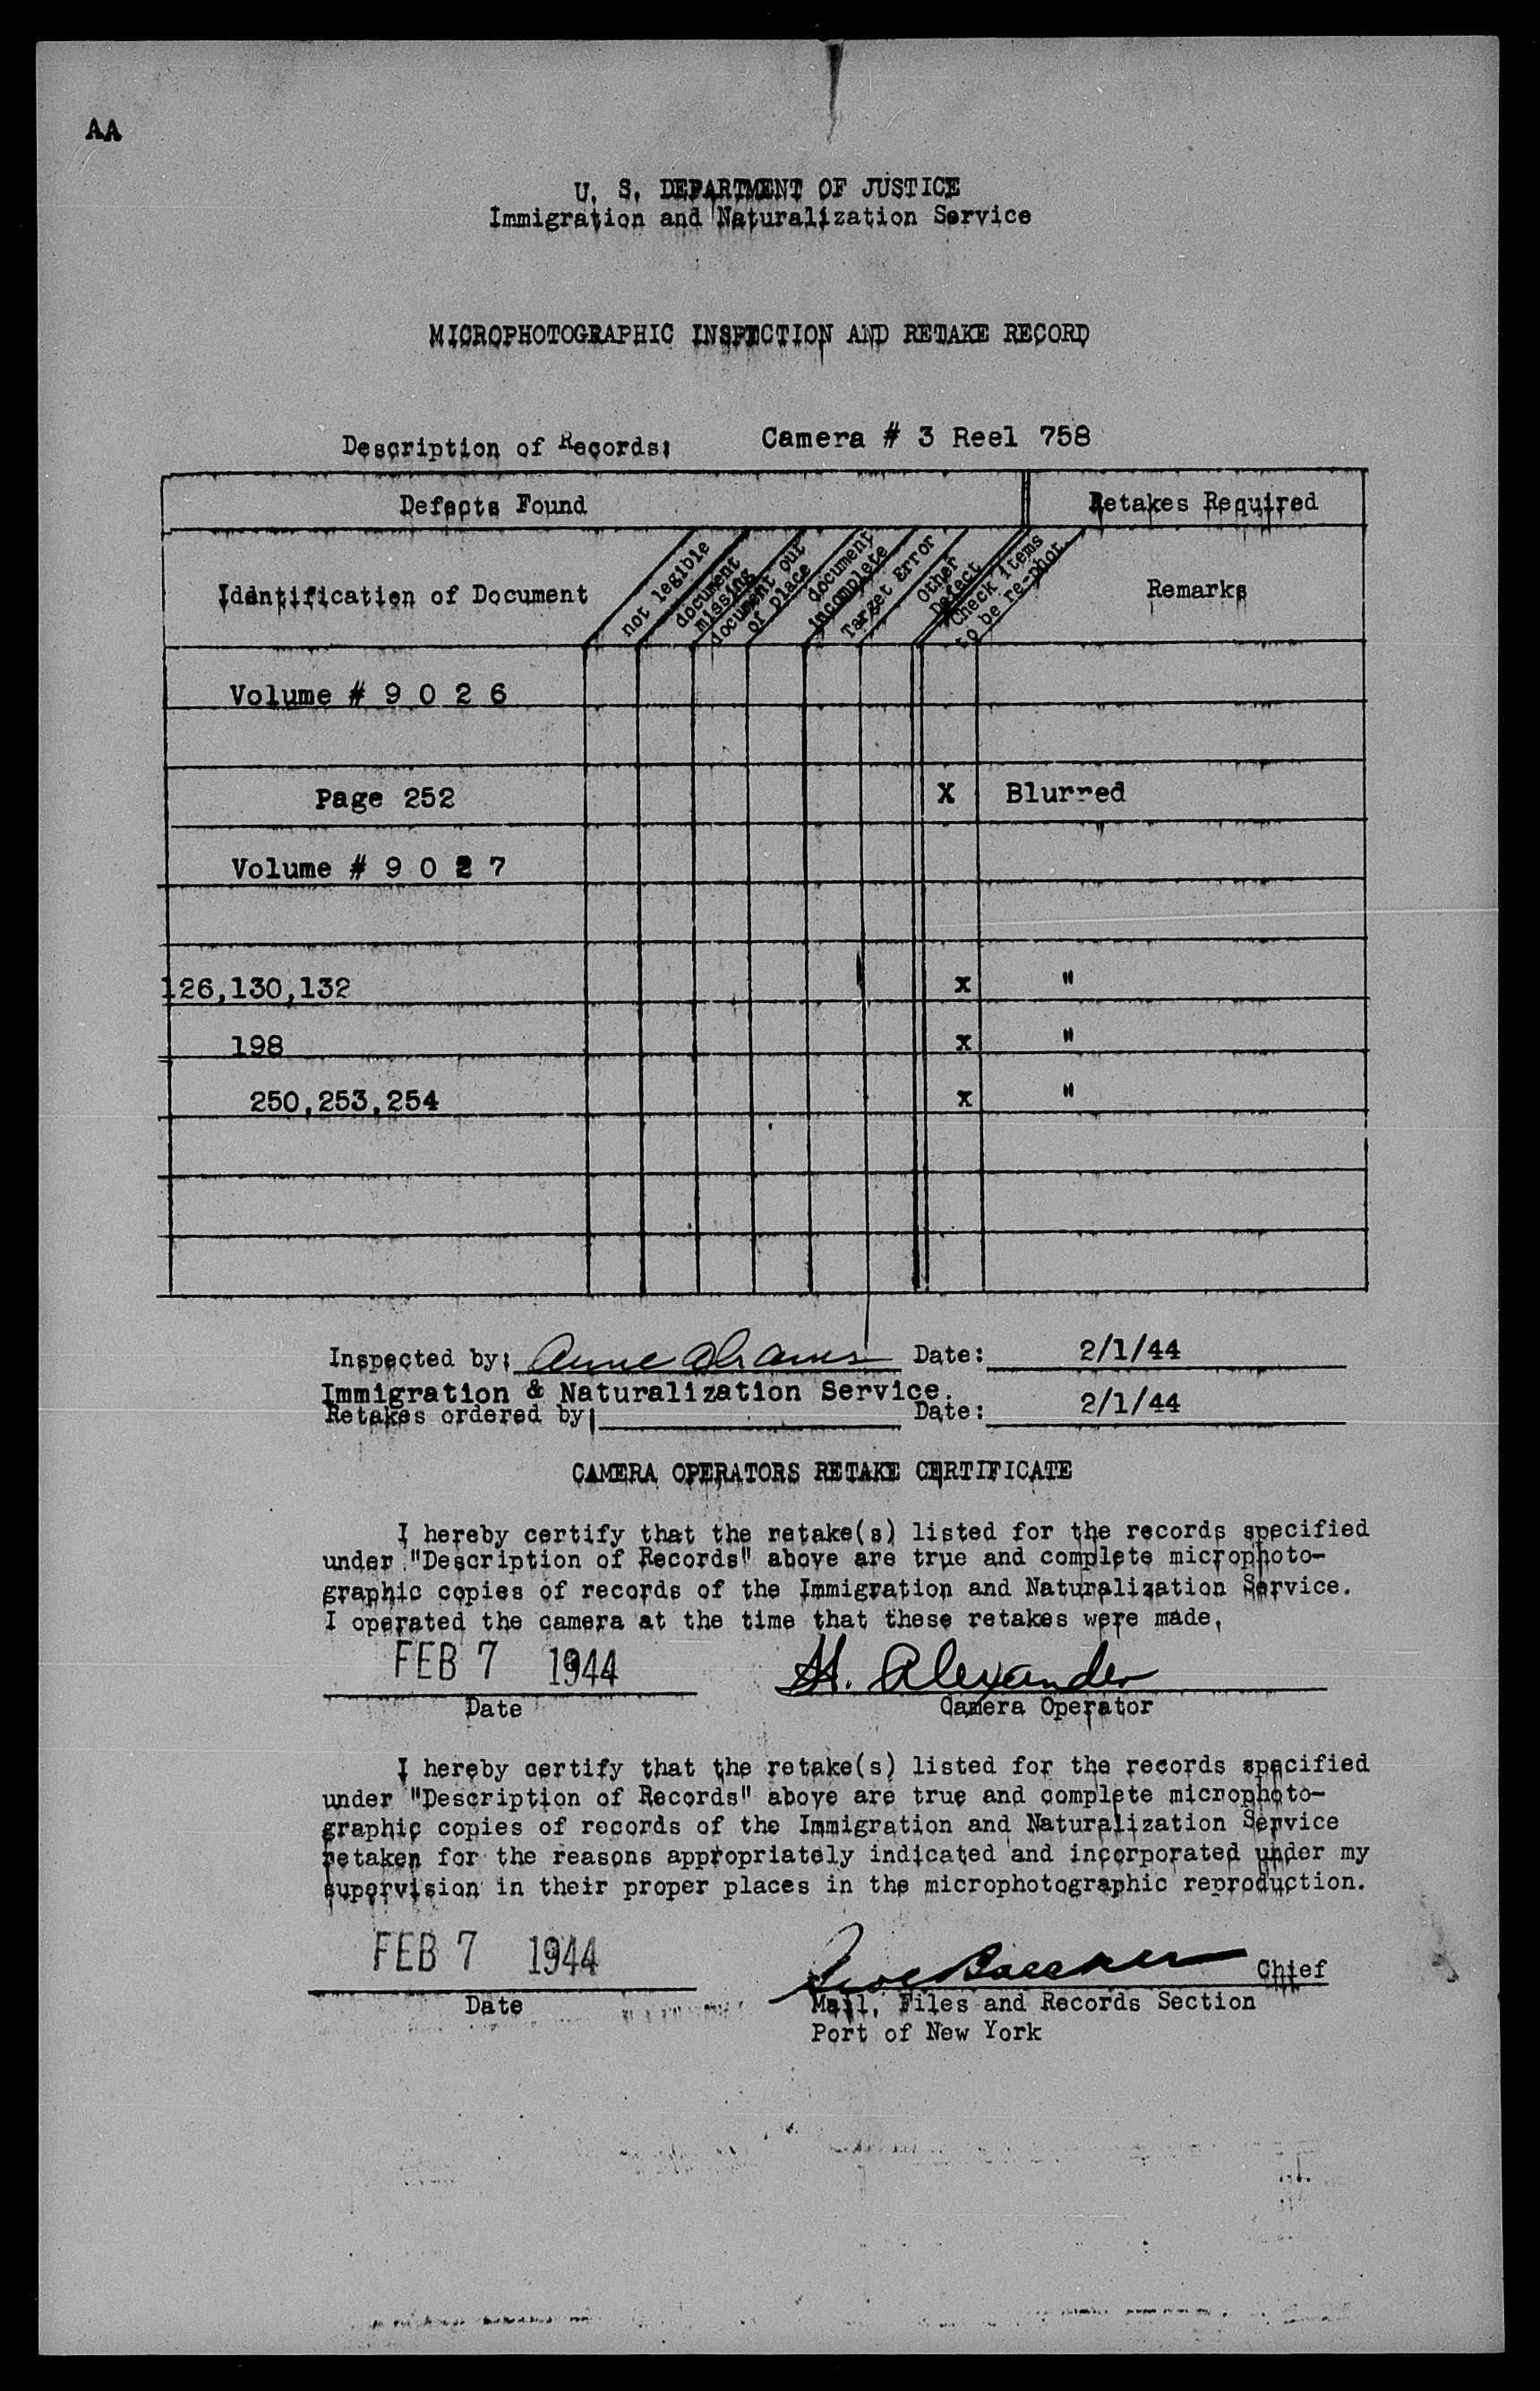 AA
U. S. DEPARTMENT OF JUSTICE
Immigration and Naturalization Service
MICROPHOTOGRAPHIC INSPECTION AND RETAKE RECORD
Description of Records: Camera # 3 Reel 758
Defects Found Retakes Required
Identification of Document
not legible
document missing
document out of place
document incomplete
Target Error
Other Defect
Check items to be re-phot.
Remarks
Volume # 9 0 2 6
Page 252 X Blurred
Volume # 9 0 2 7
126,130,132 x "
198 x "
250,253,254 x "
Inspected by: Anne Abrams Date: 2/1/44
Immigration & Naturalization Service.
Retakes ordered by: Date: 2/1/44
CAMERA OPERATORS RETAKE CERTIFICATE
I hereby certify that the retake(s) listed for the records specified
under "Description of Records" above are true and complete microphoto-
graphic copies of records of the Immigration and Naturalization Service.
I operated the camera at the time that these retakes were made.
FEB 7 1944 H. Alexander
Date Camera Operator
I hereby certify that the retake(s) listed for the records specified
under "Description of Records" above are true and complete microphoto-
graphic copies of records of the Immigration and Naturalization Service
retaken for the reasons appropriately indicated and incorporated under my
supervision in their proper places in the microphotographic reproduction.
FEB 7 1944 Chief
Date Mail, Files and Records Section
Port of New York